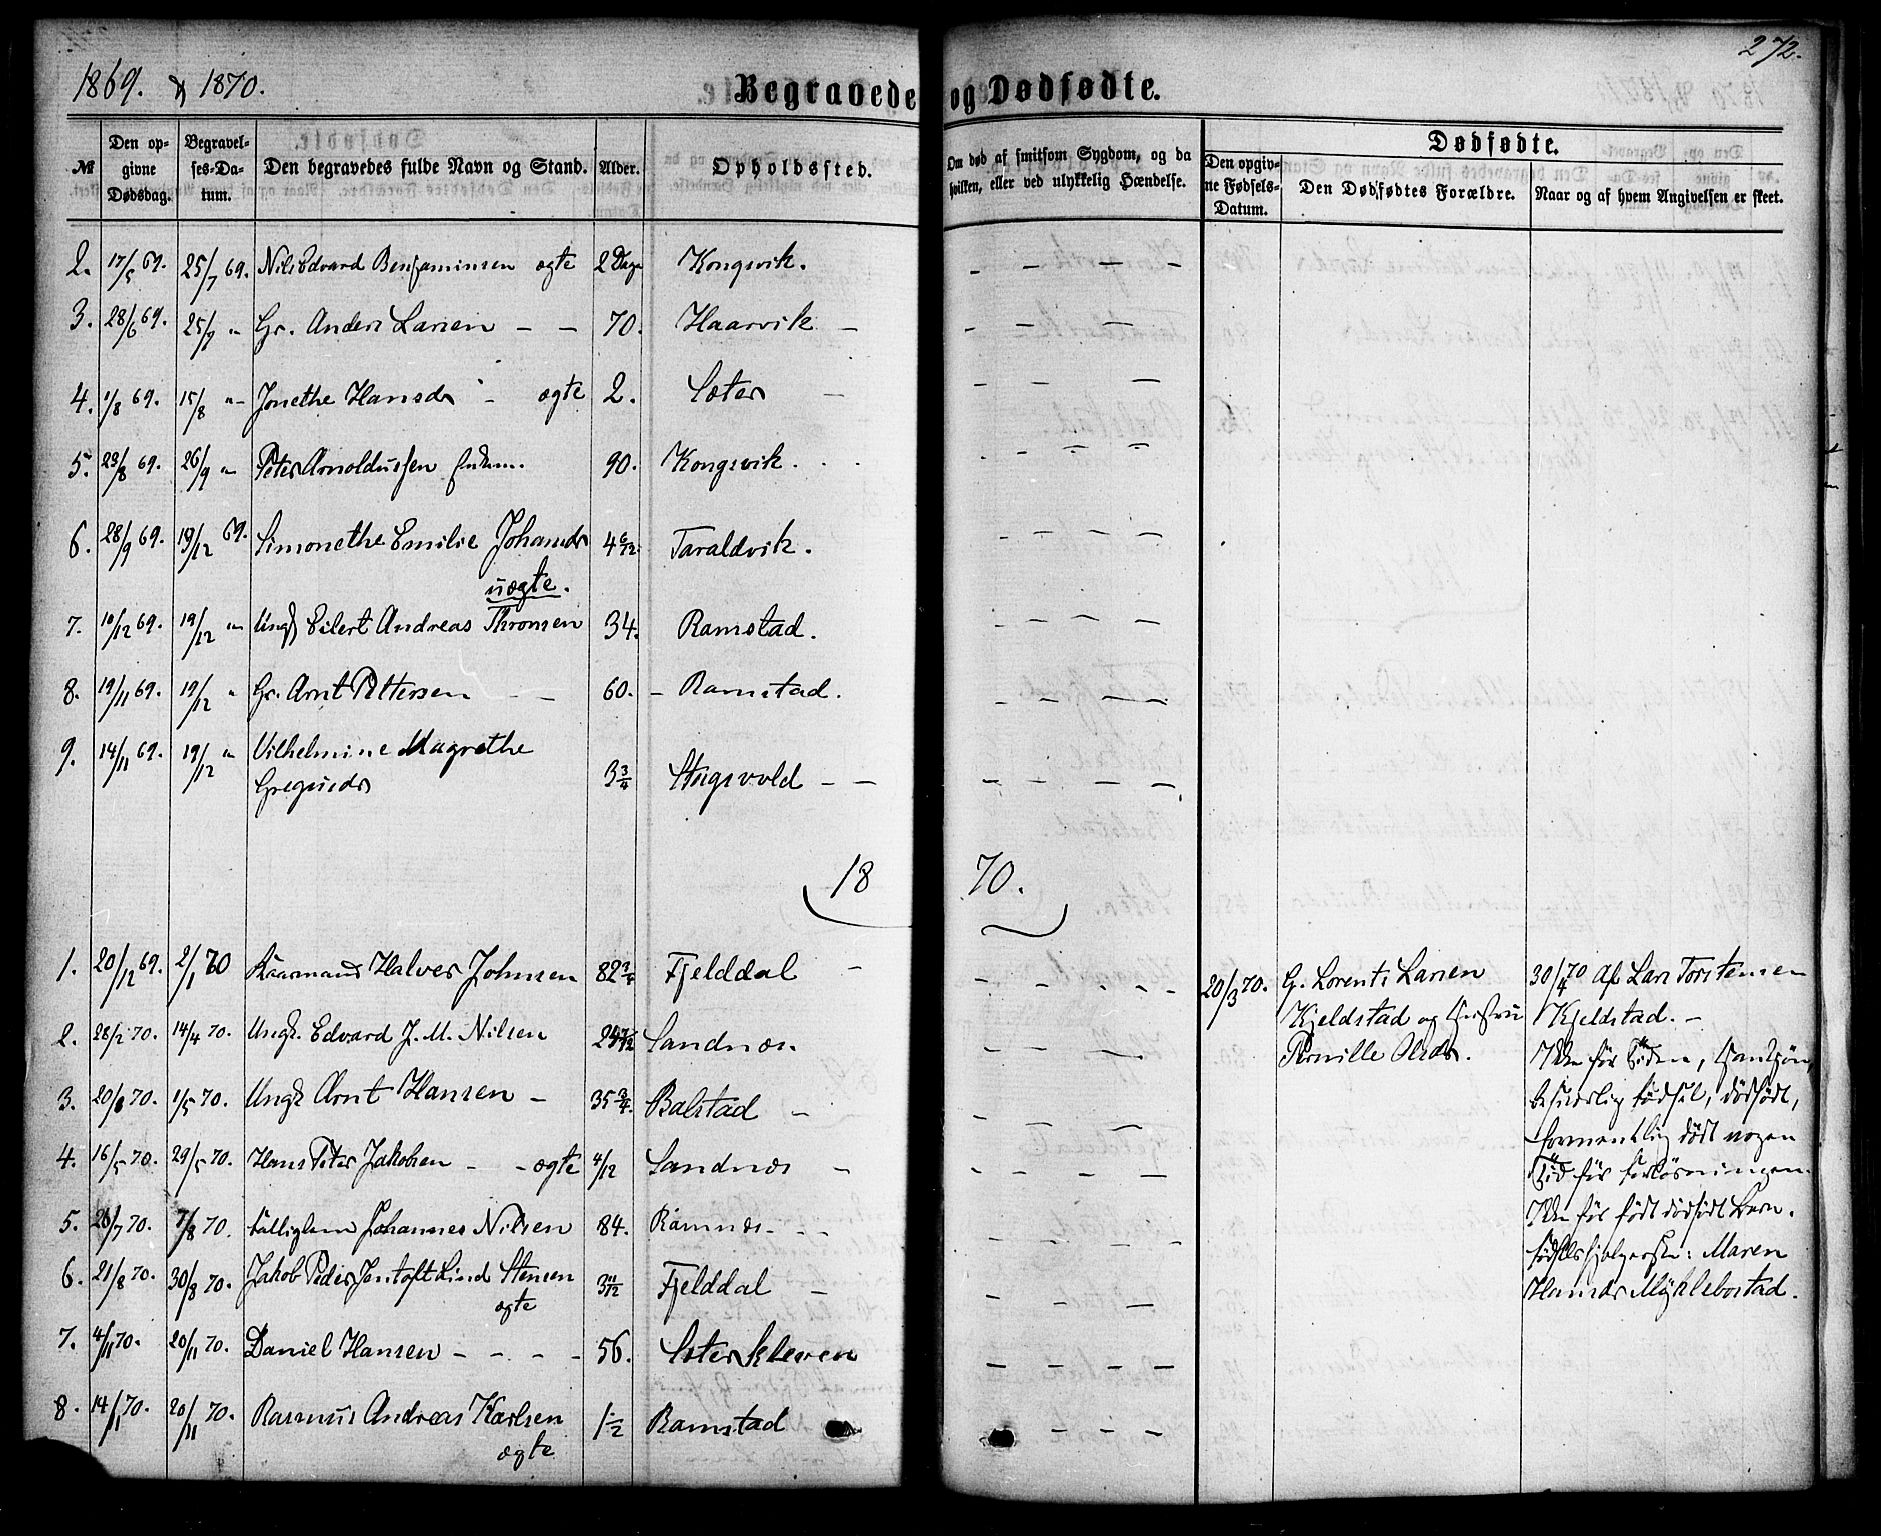 272.
1869. & 1870.
Begravede og Dødfødte.
№
Den opgivne Dødsdag.
Begravelses-Datum.
Den begravedes fulde Navn og Stand.
Alder.
Opholdssted.
Om død af smitsom Sygdom, og da hvilken, eller ved ulykkelig Hændelse.
Dødfødte.
Den opgivne Fødsels-Datum.
Den Dødfødtes Forældre.
Naar og af hvem Angivelsen er skeet.
2. 17/5 69. 25/7 69. Nils Edvard Benjaminsen ægte 2 Dage Kongsvik. — — — —
3. 28/6 69. 25/7 " Gr. Anders Larsen — — 70. Haarvik —
4. 1/8 69. 15/8 " Jonethe Hansdr - ægte 2. Sæter —
5. 23/8 69. 26/9 " Peter Arnoldussen 90. Kongsvik.
6. 28/9 69. 19/12 69. Simonethe Emilie Johansdr 4 6/12 Taraldvik.
uægte.
7. 10/12 69. 19/12 " Ungk Eilert Andreas Thronsen 34. Ramstad.
8. 19/11 69. 19/12 " Gr. Arnt Pettersen — 60. - Ramstad.
9. 14/11 69. 19/12 " Vilhelmine Magrethe
Gregusdr 3 3/4 Stugsvold — —
1870.
1. 20/12 69. 2/1 70 Kaarmand Halver Johnsen 82 3/4 Fjelddal —
2. 28/2 70. 14/4 70. Ungk. Edvard J. M. Nilsen Sandnæs.
3. 20/ 70. 1/5 70. Ungk Arnt Hansen — 35 3/4 Balstad —
4. 16/5 70. 29/5 70. Hans Peter Jakobsen - - ægte 4/12 Sandnæs —
5. 26/7 70. 7/8 70. Fattiglem Johannes Nilsen 84. Ramnæs - - -
6. 21/8 70. 30/8 70. Jakob Peder Jentoft Lind Stensen
ægte 3 11/12 Fjelddal —
7. 4/11 70. 20/11 70. Daniel Hansen - - - - 56. Sæterkleven
8. 14/11 70. 20/11 70. Rasmus Andreas Karlsen
ægte 1 1/2 Ramstad
20/3 70. G. Lorents Larsen
Kjeldstad og Hustru
Pernille Olsdr.
30/4 70 Af Lars Torstensen
Kjeldstad. —
Ikke før Tiden, Hankjøn,
besværlig Fødsel, dødfødt,
formentlig død nogen
Tid før Forløsningen.
Ikke før født dødfødt Barn.
Fødselshjælperske: Maren
Hansdr Myklebostad.